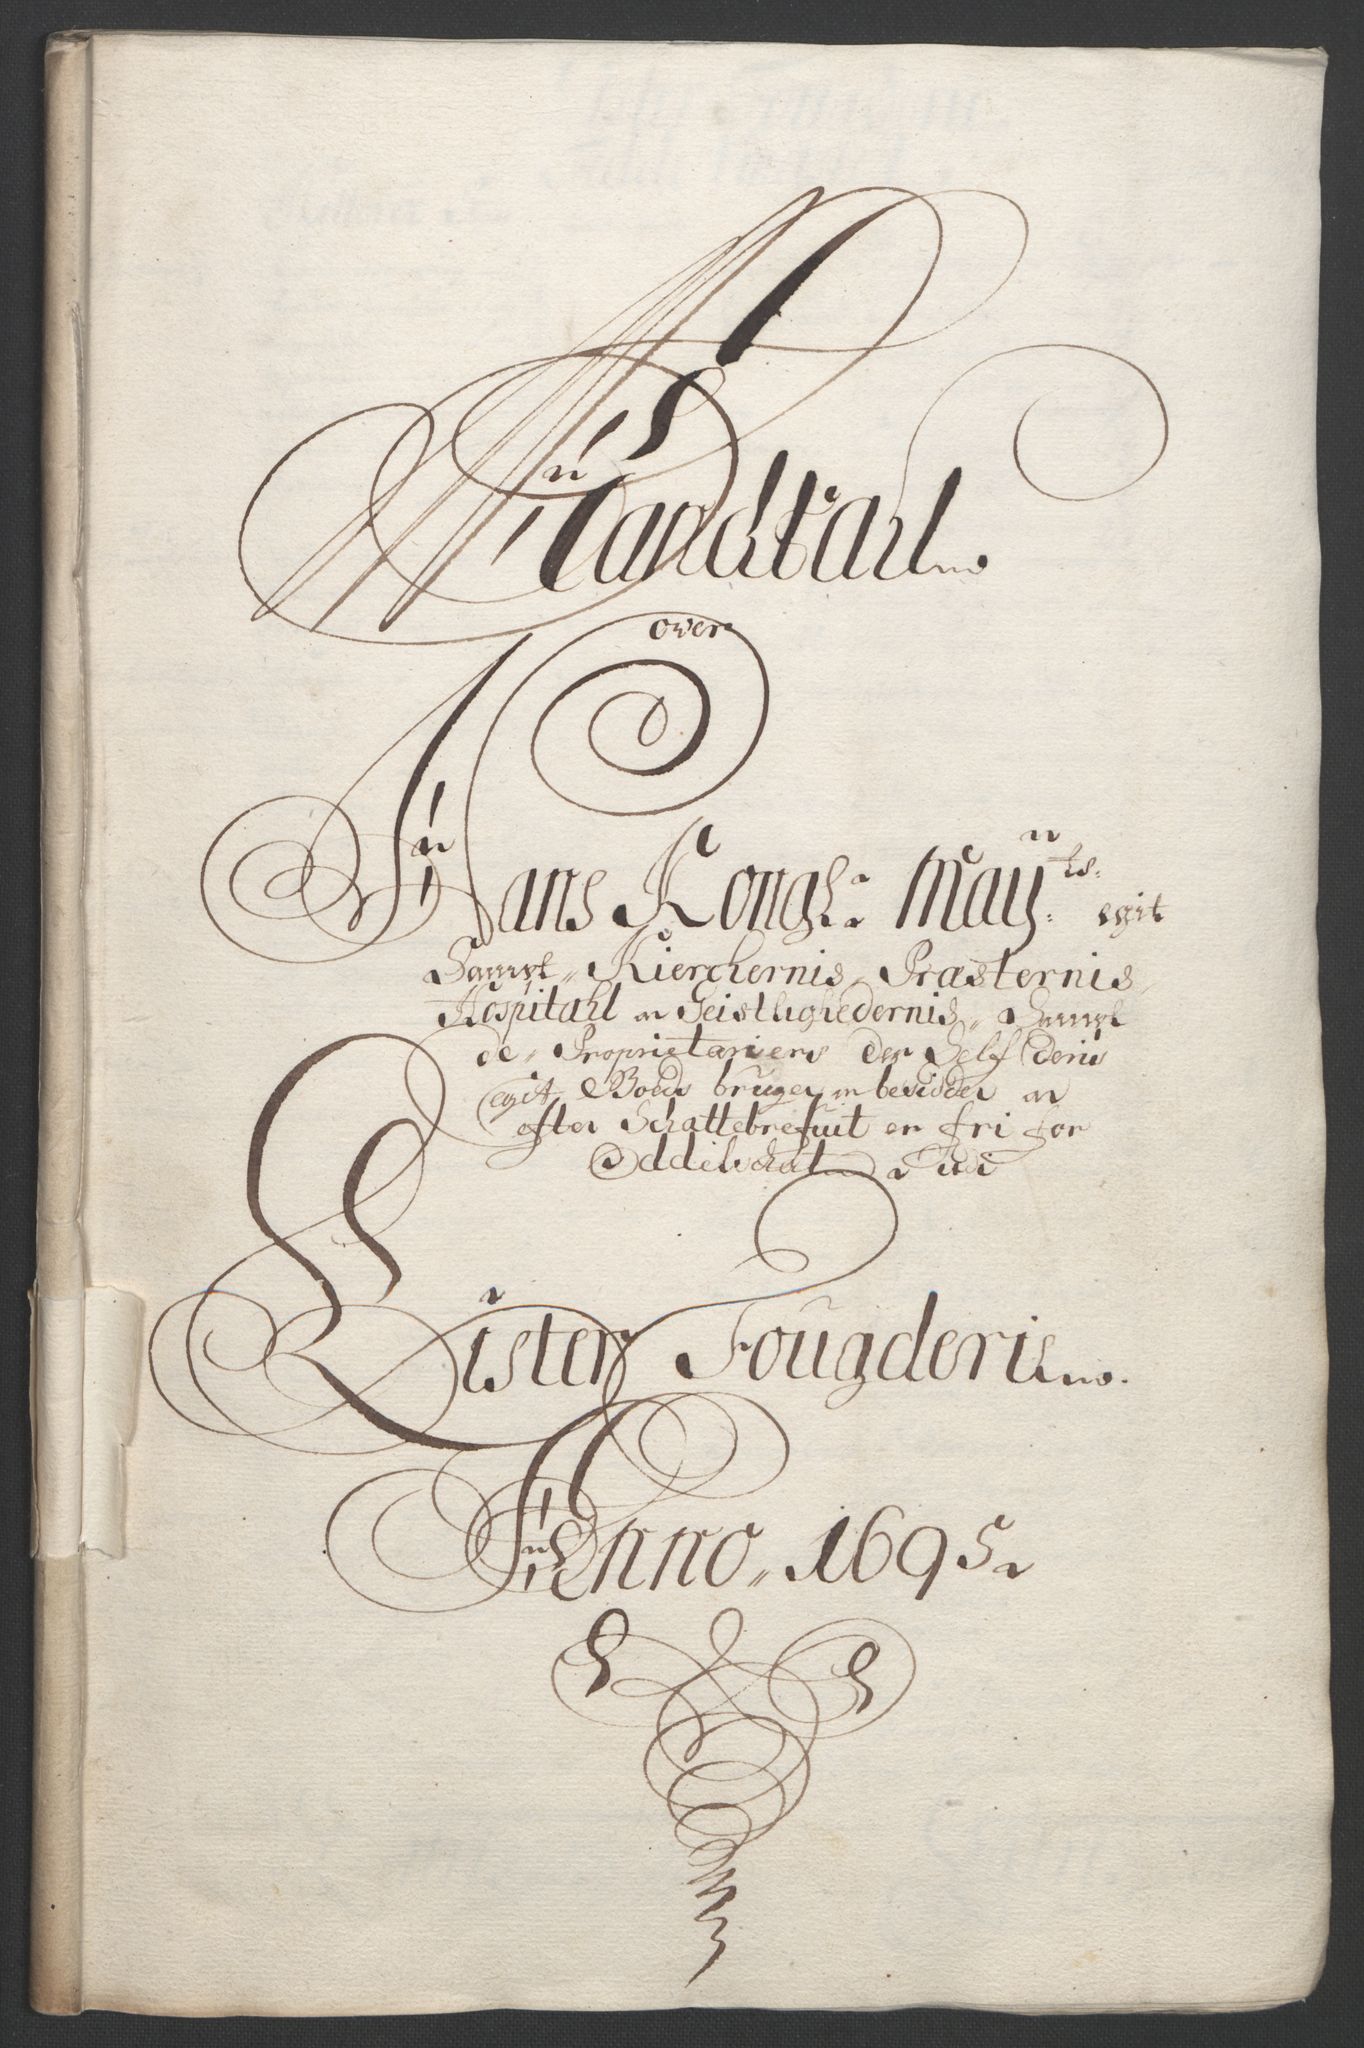 Mandtall
over
Hans Kongl: Maÿ:ts: egit
Sampt Kierchernis, Præsternis,
Hospitahl Geistlighedernis, Sampt
de Proprietariers der Self deris
egit Boed bruger besidder
efter Schattebrefuit er fri for
Oddelschat Udi
Lister Fougderie
Anno 1695